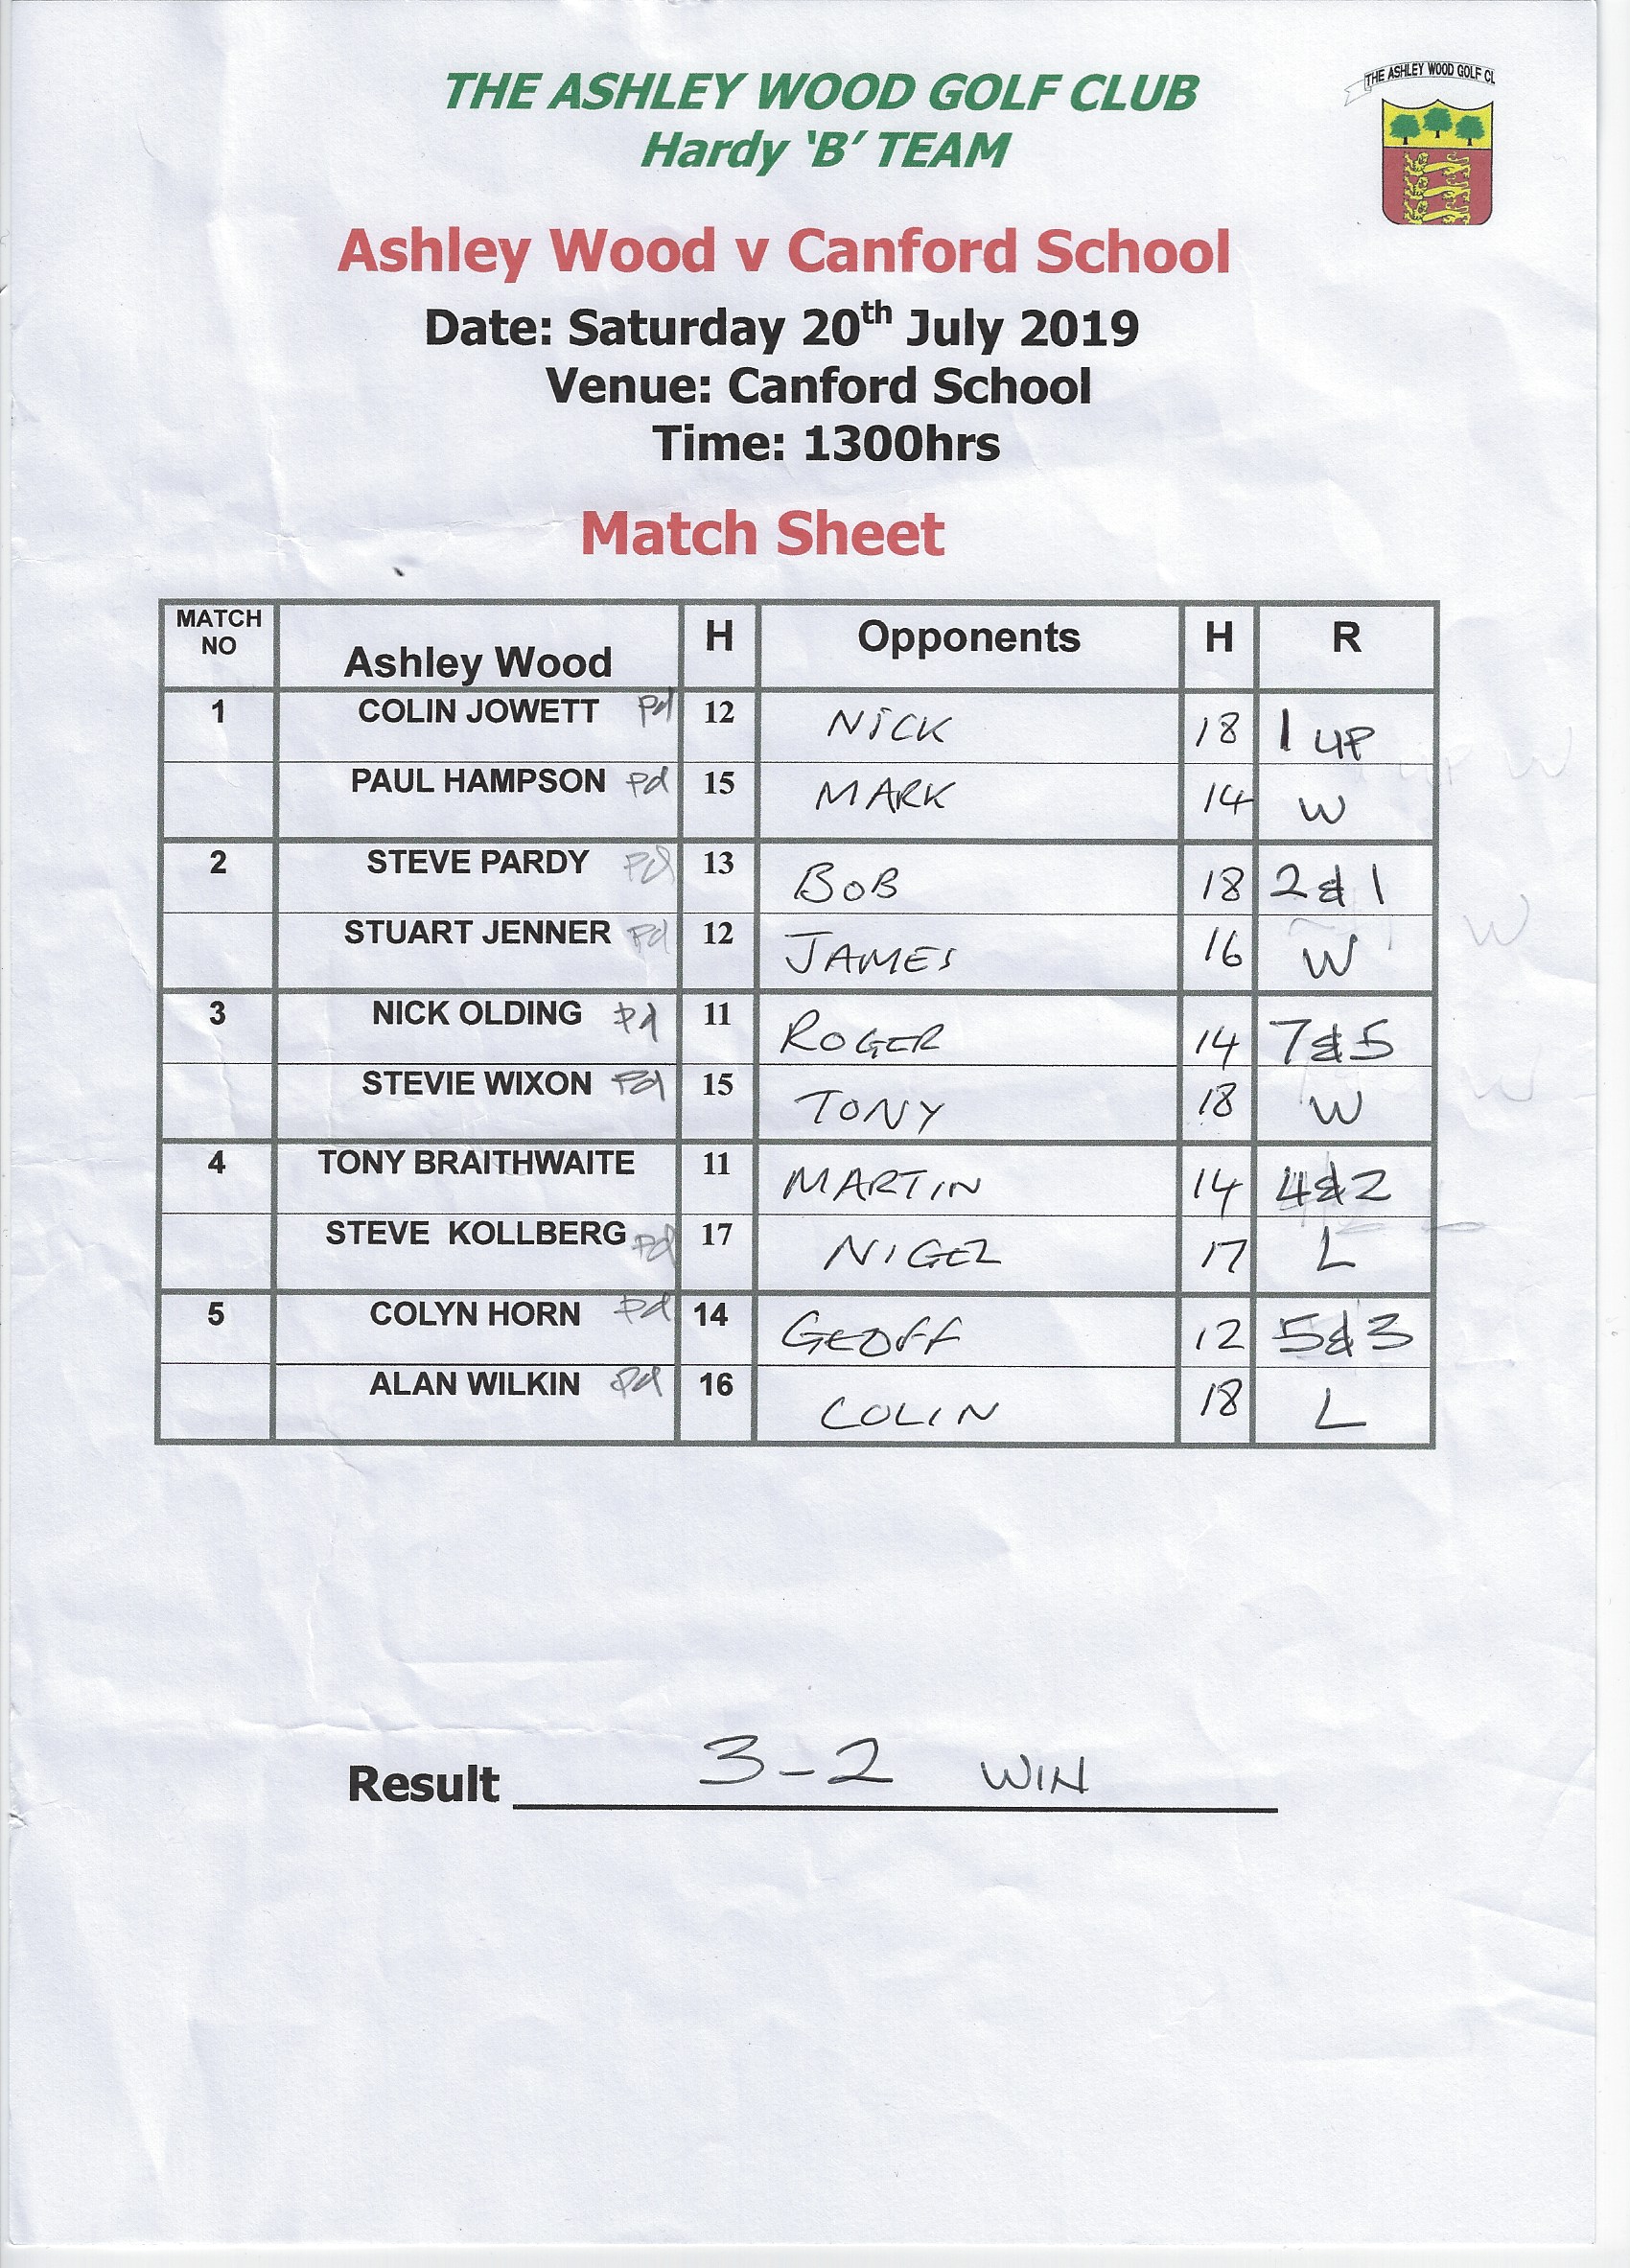 THE ASHLEY WOOD GOLF CL
THE ASHLEY WOOD GOLF CLUB
Hardy ‘B’ TEAM
Ashley Wood v Canford School
Date: Saturday 20th July 2019
Venue: Canford School
Time: 1300hrs
Match Sheet
MATCH NO Ashley Wood H Opponents H R
1 COLIN JOWETT Pd 12 NICK 18 1 UP
PAUL HAMPSON Pd 15 MARK 14 W
2 STEVE PARDY Pd 13 BOB 18 2&1
STUART JENNER Pd 12 JAMES 16 W
3 NICK OLDING Pd 11 ROGER 14 7&5
STEVIE WIXON Pd 15 TONY 18 W
4 TONY BRAITHWAITE 11 MARTIN 14 4&2
STEVE KOLLBERG Pd 17 NIGEL 17 L
5 COLYN HORN Pd 14 GEOFF 12 5&3
ALAN WILKIN Pd 16 COLIN 18 L
Result 3-2 WIN